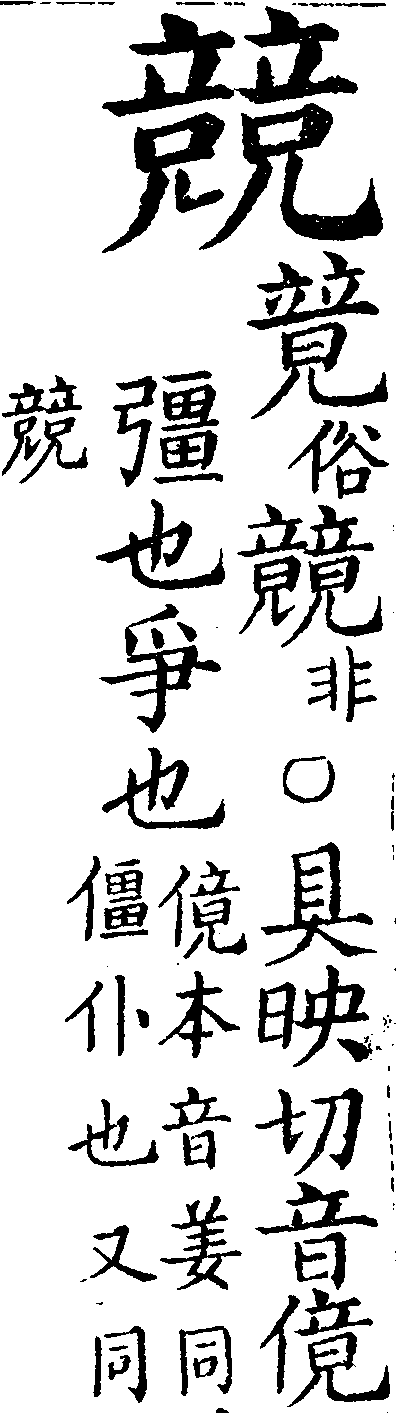 競
俗竸非○具映切音傹
彊也爭也
傹本音姜同
僵仆也又同
競